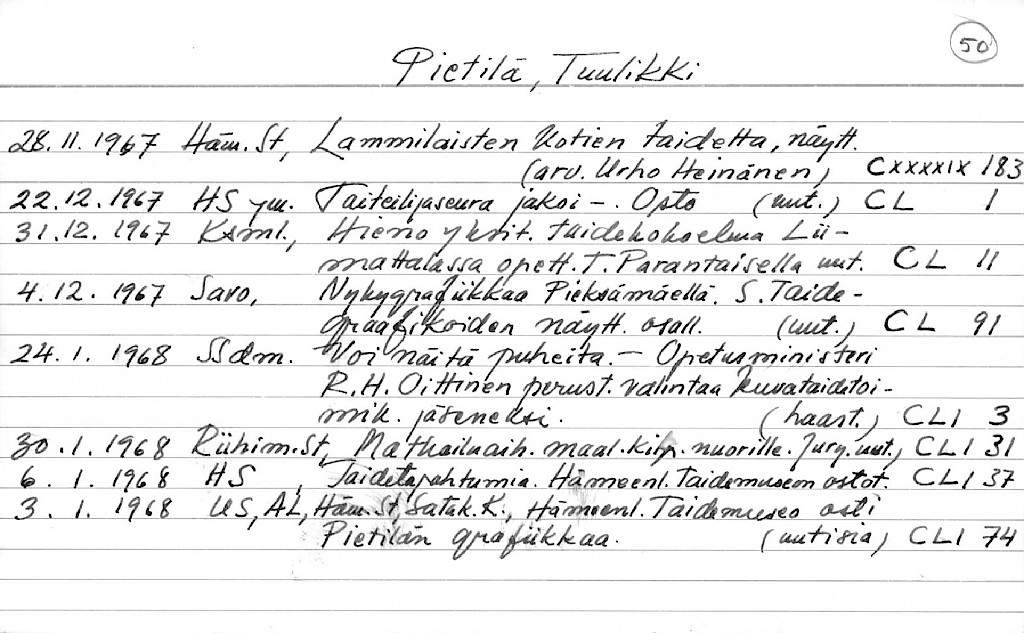 50
Pietilä, Tuulikki
28.11.1967 Häm.St, Lammilaisten kotien taidetta, näytt.
(arv. Urho Heinänen) CXXXXIX 183
22.12.1967 HS ym. Taiteilijaseura jakoi –. Osto (uut.) CL 1
31.12.1967 Ksml., Hieno yksit. taidekokoelma Lii-
mattalassa opett. T. Parantaisella uut. CL 11
4.12.1967 Savo, Nykygrafiikkaa Pieksämäellä. S. Taide-
graafikoiden näytt. osall. (uut.) CL 91
24.1.1968 SSdm. Voi näitä puheita. – Opetusministeri
R.H. Oittinen perust. valintaa kuvataidetoi-
mik. jäseneksi. (haast.) CLI 3
30.1.1968 Riihim.St, Matkailuaih. maal.kilp. nuorille. Jury. uut., CLI 31
6.1.1968 HS, Taidetapahtumia. Hämeenl. Taidemuseon ostot. CLI 37
3.1.1968 US, AL, Häm.St, Satak.K., Hämeenl. Taidemuseo osti
Pietilän grafiikkaa. (uutisia) CLI 74